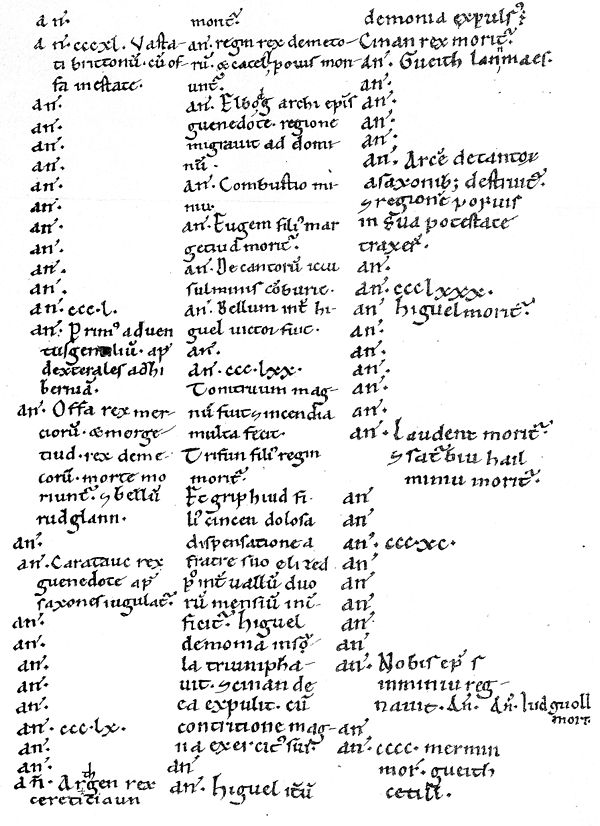 an̄.
an̄. cccxl. Vasta-
tio brittonū. cū of-
fa in estate.
an̄.
an̄.
an̄.
an̄.
an̄.
an̄.
an̄.
an̄.
an̄.
an̄.
an̄. ccc.l.
an̄. Primꝰ aduen
tus gentiliū. ap̄
dexterales ad hi
berniā.
an̄. Offa rex mer-
ciorū. & morge-
tiud. rex deme-
torū. morte mo
riunt̄. ⁊ bellū
rudglann.
an̄.
an̄. Caratauc rex
guenedote ap̄
saxones iugulat̄.
an̄.
an̄.
an̄.
an̄.
an̄.
an̄. ccc.lx.
an̄.
an̄.
an̄. Arthgen rex
cereticiaun
morit̄.
an̄. regin rex demeto-
rū. & catell povis mori-
unt̄.
an̄. Elbodg archi ep̄s
guenedote. regione
migravit ad domi
nū.
an̄. Combustio mi-
niu.
an̄. Eugem filiꝰ mar
getiud morit̄.
an̄. Decantorū ictu
fulminis cōburit̄.
an̄. Bellum int̄ hi-
guel victor fuit.
an̄.
an̄. ccc.lxx.
Tonitruum mag-
nū fuit ⁊ incendia
multa fecit.
Trifun filiꝰ regin
morit̄.
Et griphiud fi-
liꝰ cincen dolosa
dispensatione a
fratre suo elized
p̄ int̄uallū duo
rū mensiū int̄-
ficit̄. higuel
demonia insu-
la triumpha-
vit. ⁊ cinan de
ea expulit. cū
contritione mag-
na exercitꝰ sui.
an̄
an̄. higuel itm̄
demonia expulsꝰ ē
Cinan rex morit̄.
an̄. Gueith lannmaes.
an̄.
an̄.
an̄.
an̄.
an̄. Arcē detantor
a saxonib; destruit̄.
⁊ regionē poyuis
in sua potestate
traxer̄.
an̄.
an̄. ccclxxx.
an̄. higuel morit̄.
an̄.
an̄.
an̄.
an̄.
an̄.
an̄. Laudent morit̄.
⁊ sat̄biu hail
miniu morit̄.
an̄
an̄
an̄. ccc.xc.
an̄
an̄
an̄
an̄
an̄
an̄. Nobis ep̄s
in miniu reg-
navit. An̄. An̄. Iudguoll
morit̄.
an̄
an̄. cccc. mermin
mor. gueith
cetill.